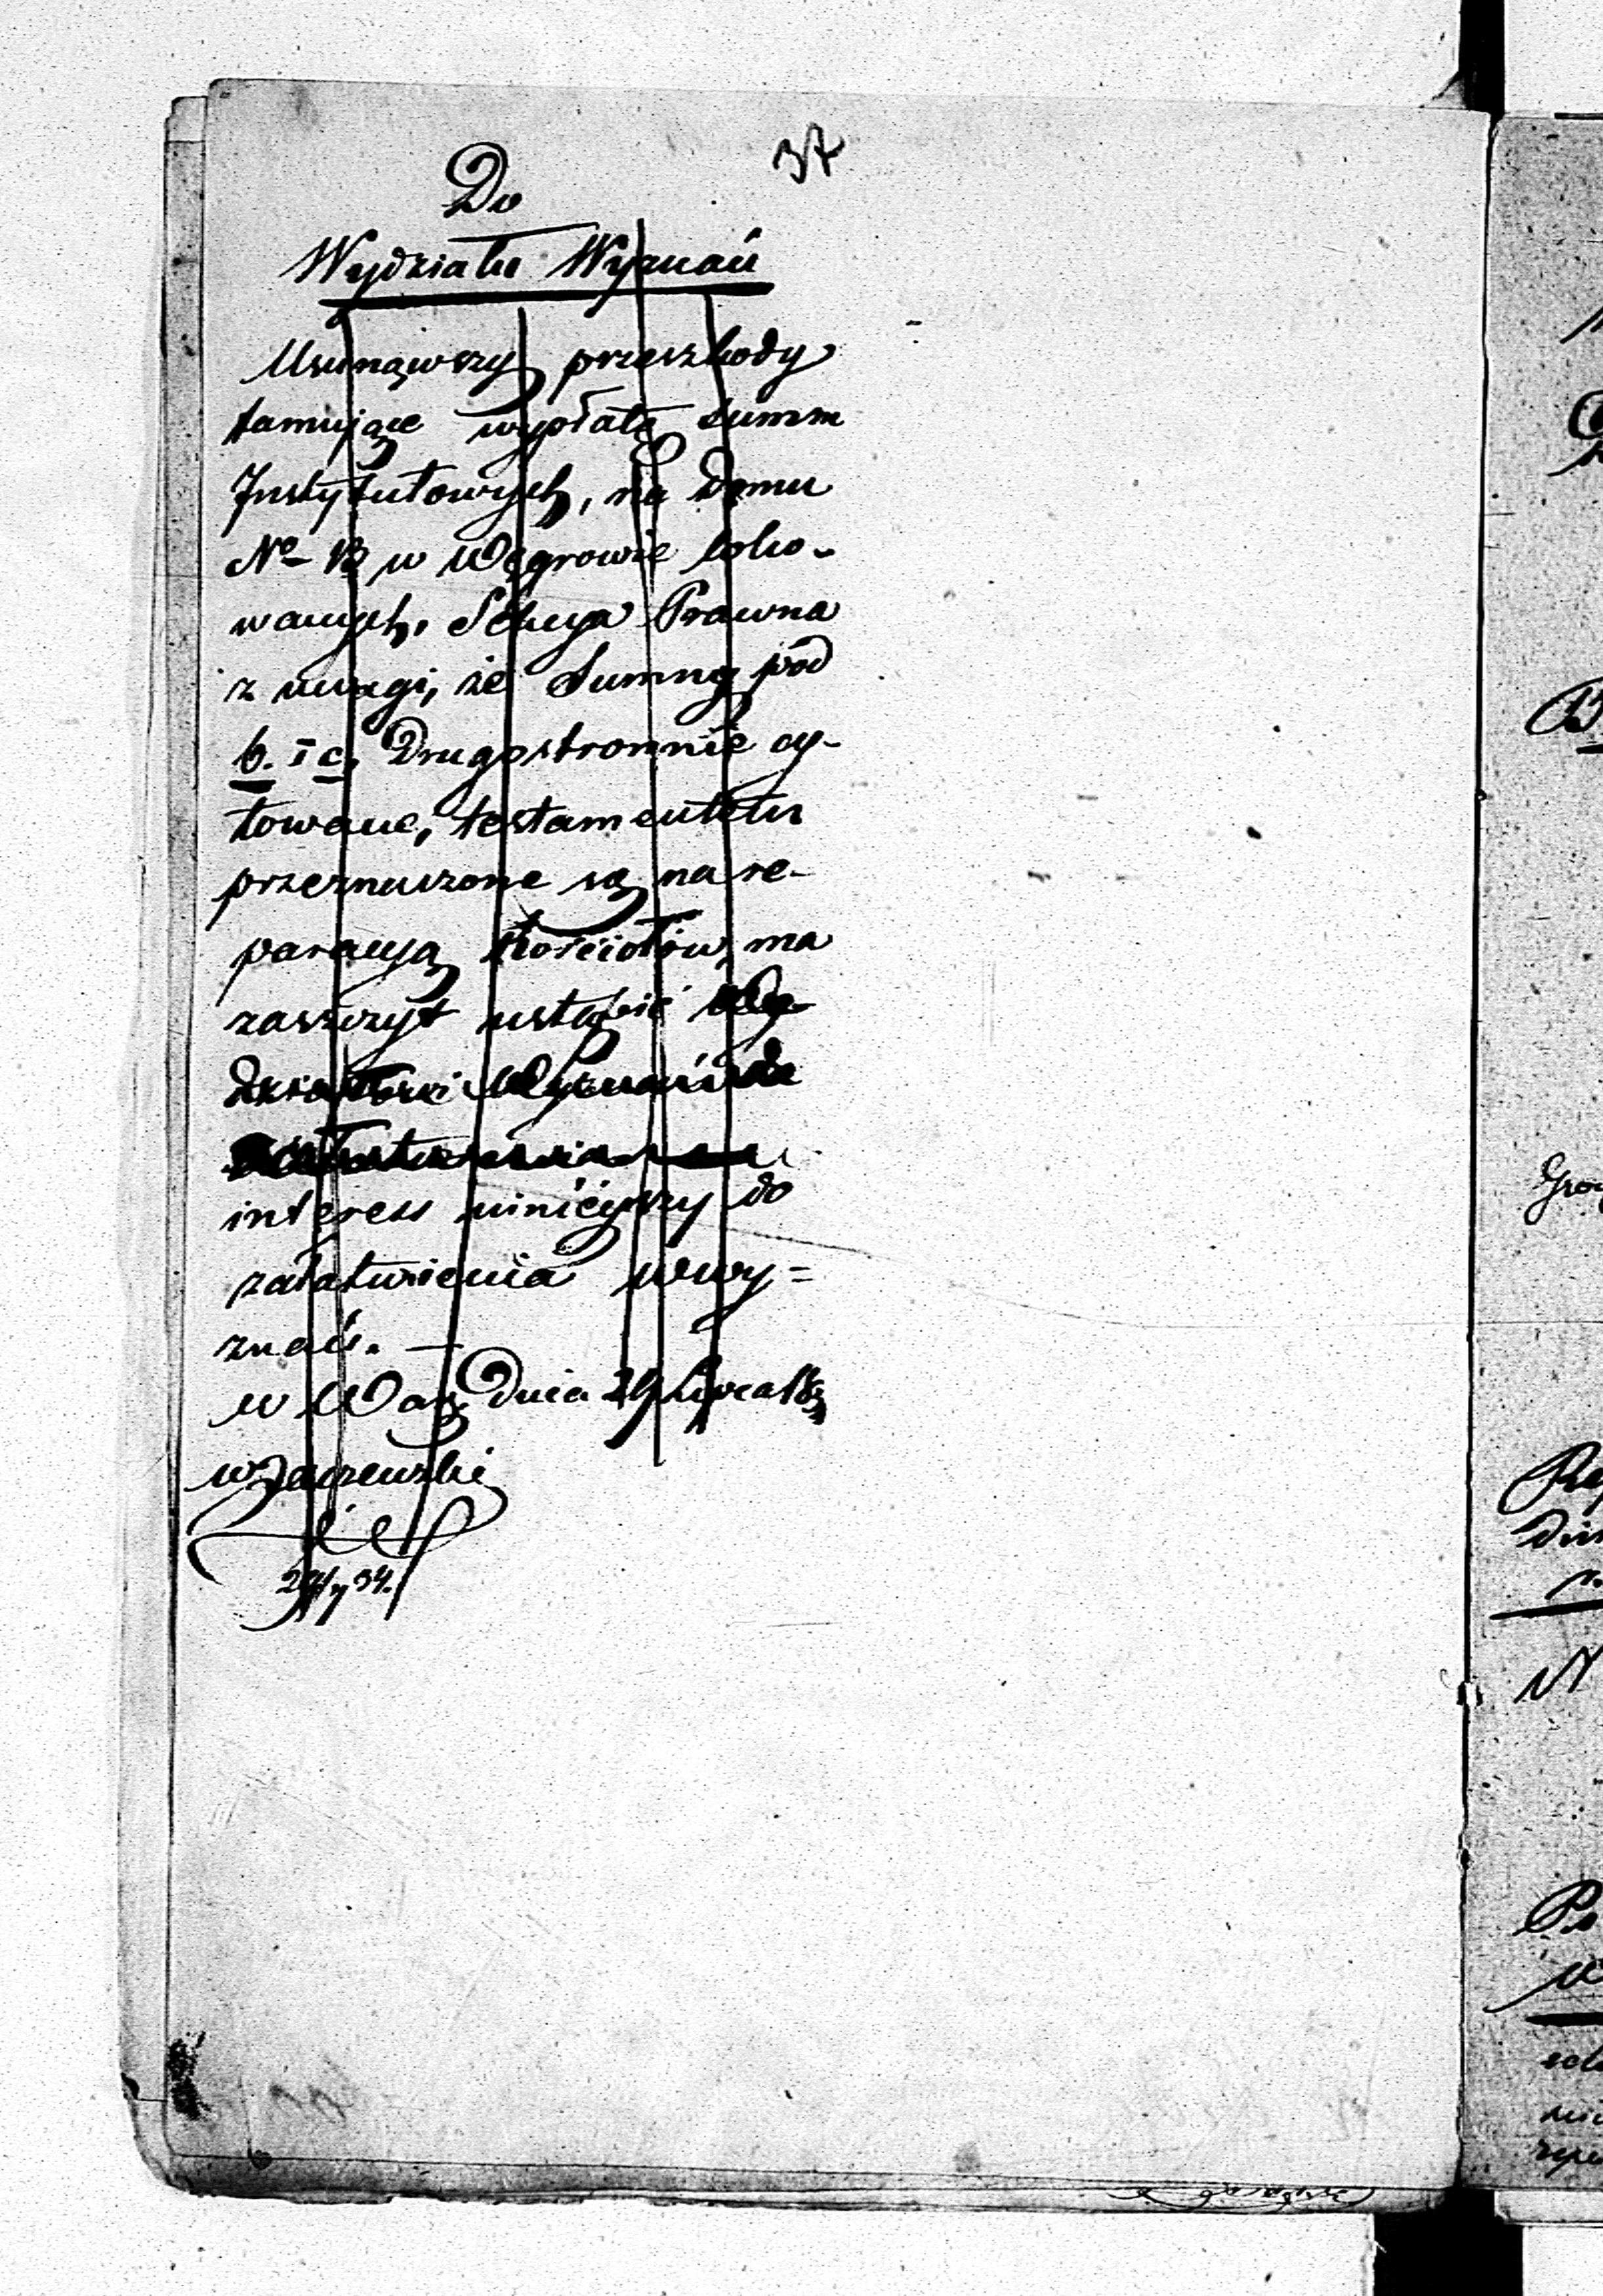 37
Do
Wydziału Wyznań
Usunąwszy przeszkody
tamujące wypłatę summ
Instytutowych, na domu
No 13 w Węgrowie loko-
wanych, Sekcya Prawna
z uwagi, że Summy pod
b. i c. drugostronnie cy-
towane, testamentem
przeznaczone są na re-
paracyą Kościołów, ma
zaszczyt ustąpić Wy-
działowi Wyznań do
załatwienia
interess niniejszy do
załatwienia Wy=
znań. —
w War. Dnia 29 Lipca
29/7 34.